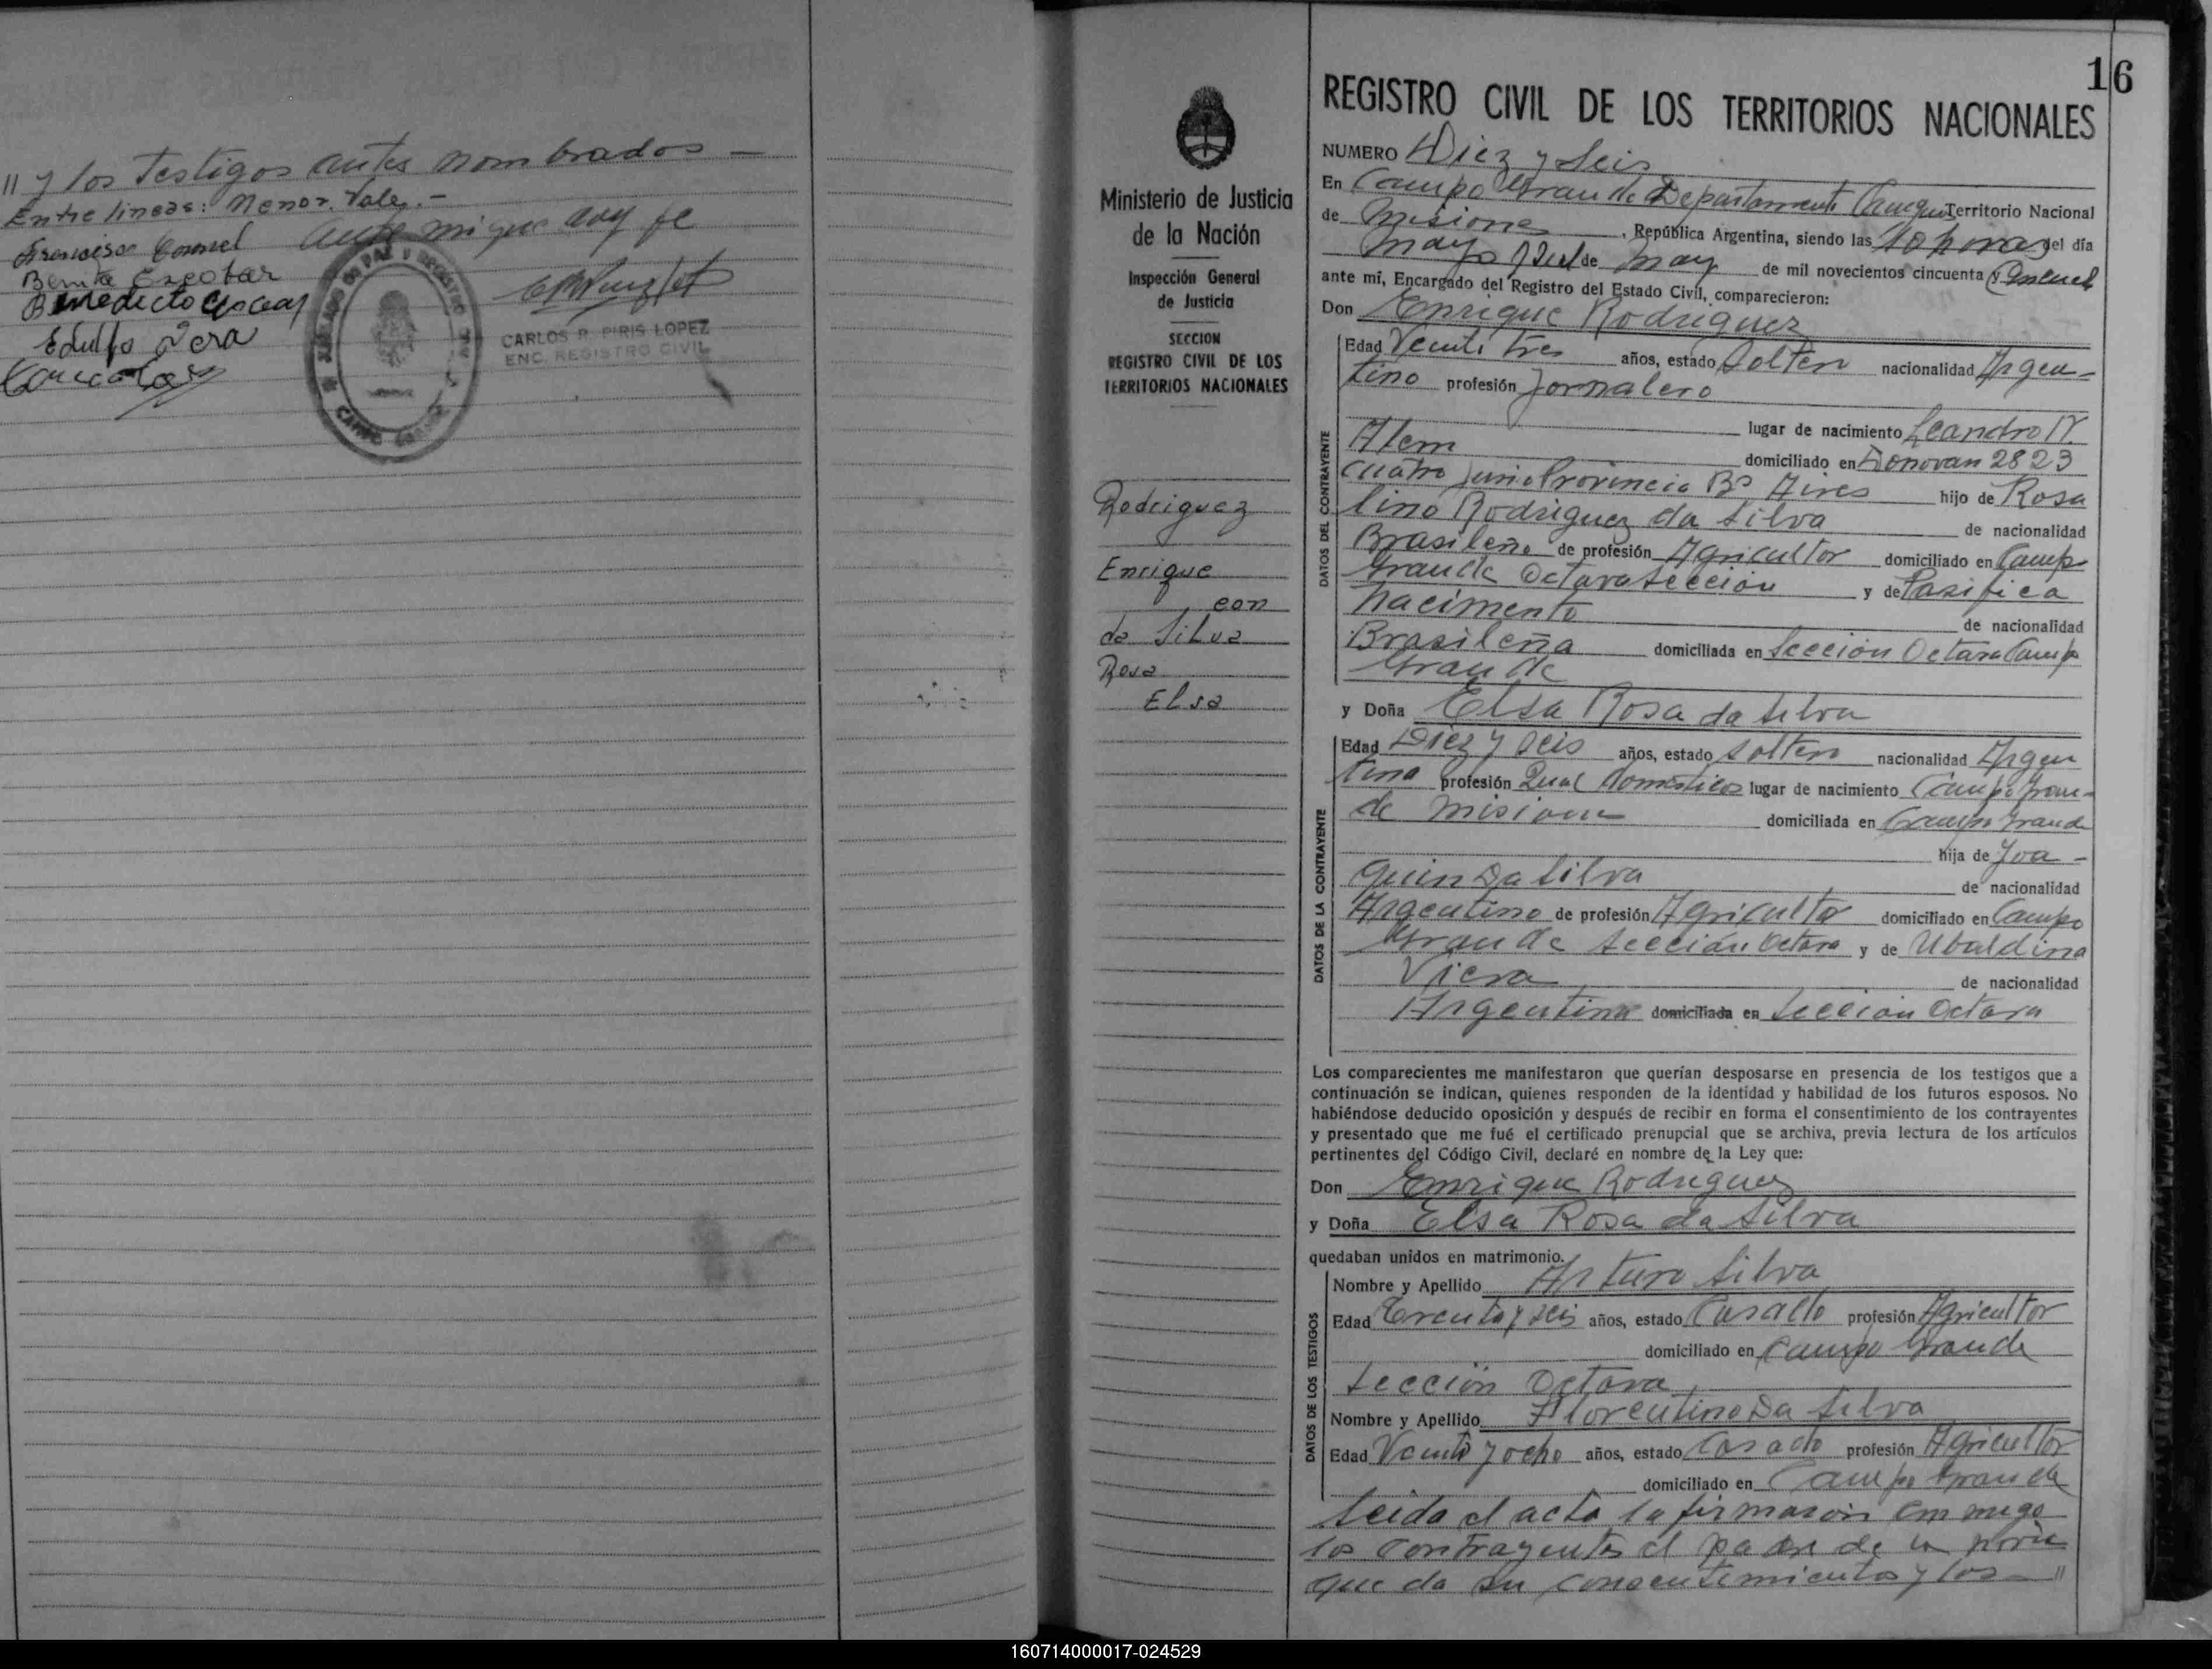 " y los testigos antes nombrados —
Entre lineas: menor. Vale. -
Francisco Coronel ante mi que doy fe
Benita Escobar
Benedicto
Edulfo Vera
JUZGADO DE PAZ Y REGISTRO CIVIL
CAMPO GRANDE
CARLOS R. PIRIS LOPEZ
ENC. REGISTRO CIVIL
16
Ministerio de Justicia
de la Nación
Inspección General
de Justicia
SECCION
REGISTRO CIVIL DE LOS
TERRITORIOS NACIONALES
Rodriguez
Enrique
con
da Silva
Rosa
Elsa
REGISTRO CIVIL DE LOS TERRITORIOS NACIONALES
NUMERO Diez y Seis
En Campo Grande Departamento Territorio Nacional
de Misiones, República Argentina, siendo las 10 horas del día
de mayo de mil novecientos cincuenta y
ante mí, Encargado del Registro del Estado Civil, comparecieron:
Don Enrique Rodriguez
DATOS DEL CONTRAYENTE
Edad Veinti tres años, estado Soltero nacionalidad Argen-
tino profesión Jornalero
lugar de nacimiento Leandro N.
Alem domiciliado en Donovan 2823
cuatro Junio Provincia Bs Aires hijo de Rosa
lino Rodriguez da Silva de nacionalidad
Brasileño de profesión Agricultor domiciliado en Campo
Grande Octava Sección y de Pasifica
Nacimento de nacionalidad
Brasileña domiciliada en Sección Octava Campo
Grande
y Doña Elsa Rosa da Silva
DATOS DE LA CONTRAYENTE
Edad Diez y seis años, estado soltera nacionalidad Argen
tina profesión Qued domesticos lugar de nacimiento Campo Gran-
de Misiones domiciliada en Campo Grande
hija de Joa-
quin Da Silva de nacionalidad
Argentino de profesión Agricultor domiciliado en Campo
Grande Sección Octava y de Ubaldina
Viera de nacionalidad
Argentina domiciliada en Sección Octava
Los comparecientes me manifestaron que querían desposarse en presencia de los testigos que a
continuación se indican, quienes responden de la identidad y habilidad de los futuros esposos. No
habiéndose deducido oposición y después de recibir en forma el consentimiento de los contrayentes
y presentado que me fué el certificado prenupcial que se archiva, previa lectura de los artículos
pertinentes del Código Civil, declaré en nombre de la Ley que:
Don Enrique Rodriguez
y Doña Elsa Rosa da Silva
quedaban unidos en matrimonio.
DATOS DE LOS TESTIGOS
Nombre y Apellido Arturo Silva
Edad Treinta y seis años, estado Casado profesión Agricultor
domiciliado en Campo Grande
Sección Octava
Nombre y Apellido Florentino Da Silva
Edad Veinte y ocho años, estado Casado profesión Agricultor
domiciliado en Campo Grande
Leida el acta la firmaron conmigo
los contrayentes el padre de la novia
que da su consentimiento y los — "
160714000017-024529